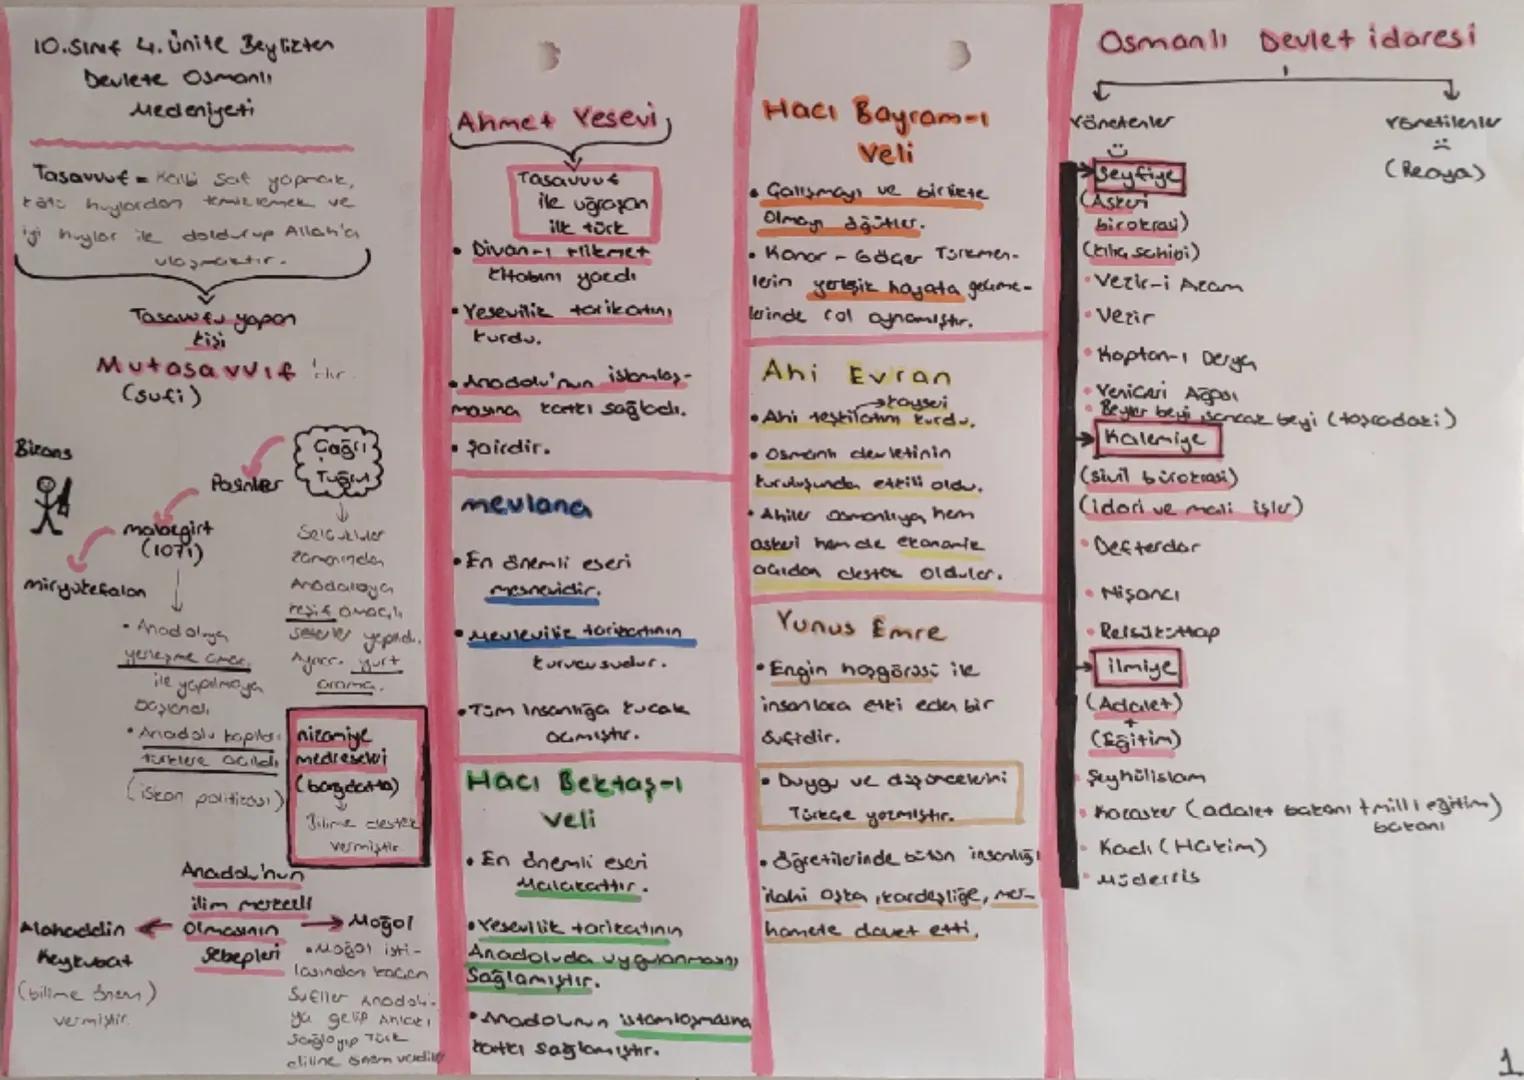 10.Sınıf 4. Ünite Beylikten
Devlete Osmanlı
Medeniyeti
Tasavvuf = Kalbi saf yapmak,
kötü huylardan temizlemek ve
iyi huylar ile doldurup Allah'a
ulaşmaktır.
Tasavvufu yapan
kişi
Mutasavvıf 'tır.
(sufi)
Bizans
Çağrı
Tuğrul
Pasinler
malazgirt
(1071)
miryokefalon
Selçuklular
zamanında
Anadoluya
keşif amaçlı
seferler yapıldı.
Ayrıca yurt
arama.
• Anadoluya
yerleşme amacı
ile yapılmaya
başlandı
• Anadolu kapıları
türklere açıldı
(iskan politikası)
nizamiye
medreseleri
(bağdatta)
Bilime destek
vermiştir.
Anadolu'nun
ilim merkezli
olmasının
sebepleri
Alahaddin
Keykubat
(bilime önem)
vermiştir.
Moğol
• Moğol isti-
lasından kaçan
Sufiler Anadolu-
ya gelip
sağlayıp Türk
diline önem verdiler
Ahmet Yesevi
Tasavvuf
ile uğraşan
ilk türk
• Divan-ı Hikmet
kitabını yazdı
• Yesevilik tarikatını
kurdu.
• Anadolu'nun islamlaş-
masına katkı sağladı.
• Şairdir.
mevlana
• En önemli eseri
mesnevidir.
• Mevlevilik tarikatının
kurucusudur.
• Tüm insanlığa kucak
açmıştır.
Hacı Bektaş-ı
Veli
• En önemli eseri
Malakattır.
• Yesevilik tarikatının
Anadoluda uygulanmasını
sağlamıştır.
• Anadolunun islamlaşmasına
katkı sağlamıştır.
Hacı Bayram-ı
Veli
• Çalışmayı ve birlikte
Olmayı öğütler.
• Konar - Göçer Türkmen-
lerin yerleşik hayata geçme-
lerinde rol oynamıştır.
Ahi Evran
→ kayseri
• Ahi teşkilatını kurdu.
• Osmanlı devletinin
kuruluşunda etkili oldu.
• Ahiler osmanlıya hem
askeri hem de ekonomik
açıdan destek oldular.
Yunus Emre
• Engin hoşgörüsü ile
insanlara etki eden bir
Sufidir.
• Duygu ve düşüncelerini
Türkçe yazmıştır.
• Öğretilerinde bütün insanlığı
ilahi aşka, kardeşliğe, mer-
hamete davet etti.
Osmanlı Devlet idaresi
Yönetenler
Yönetilenler
(Reaya)
Seyfiye
(Askeri
birokrasi)
(kılıç sahibi)
• Vezir-i Azam
• Vezir
• Kaptan-ı Derya
• Yeniçeri Ağası
• Beyler beyi, sancak beyi (taşradaki)
Kalemiye
(sivil bürokrasi)
(idari ve mali işler)
• Defterdar
• Nişancı
• Reisülküttap
ilmiye
(Adalet)
+
(Eğitim)
• Şeyhülislam
• Kazasker (adalet bakanı + milli eğitim)
bakanı
• Kadı (Hakim)
• Müderris
1